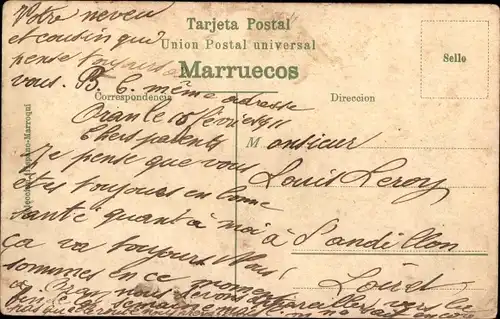 Votre neveu
et cousin qui
pense toujours a
vous. B. C. même adresse
Tarjeta Postal
Union Postal universal
Marruecos
Correspondencia
Direccion
Sello
Oran le 15 février 11
Chers parents
Je pense que vous
etes toujours en bonne
santé quant à moi
ça va toujours. Nous
sommes en ce moment
a Oran nous
Monsieur
Louis Leroy
à Sandillon
Loiret
Hispano-Marroqui